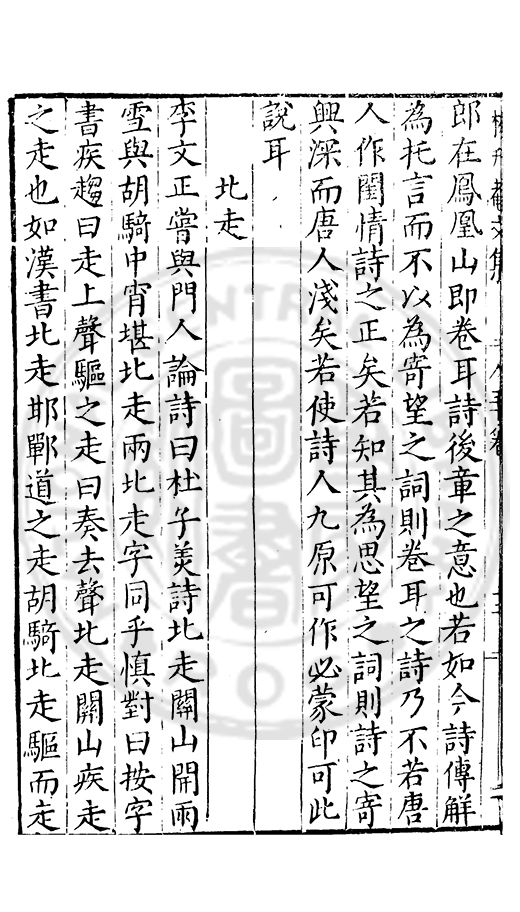 郎在鳳凰山即卷耳詩後章之意也若如今詩傳解
為托言而不以為寄望之詞則卷耳之詩乃不若唐
人作閨情詩之正矣若知其為思望之詞則詩之寄
興深而唐人淺矣若使詩人九原可作必蒙印可此
說耳
北走
李文正嘗與門人論詩曰杜子美詩北走關山開雨
雪與胡騎中宵堪北走兩北走字同乎慎對曰按字
書疾趨曰走上聲驅之走曰奏去聲北走關山疾走
之走也如漢書北走邯鄲道之走胡騎北走驅而走